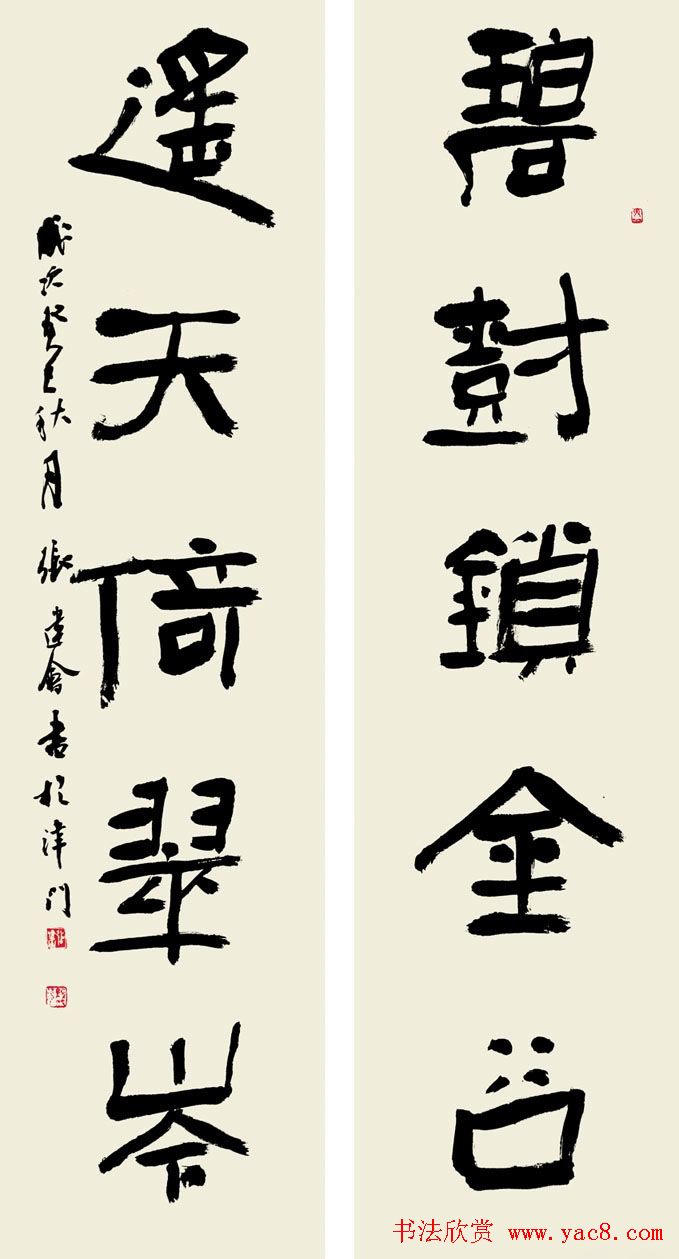 碧尌鎖金谷
遙天倚翠岑
歲次癸巳秋月 張建會書於津門
书法欣赏 www.yac8.com